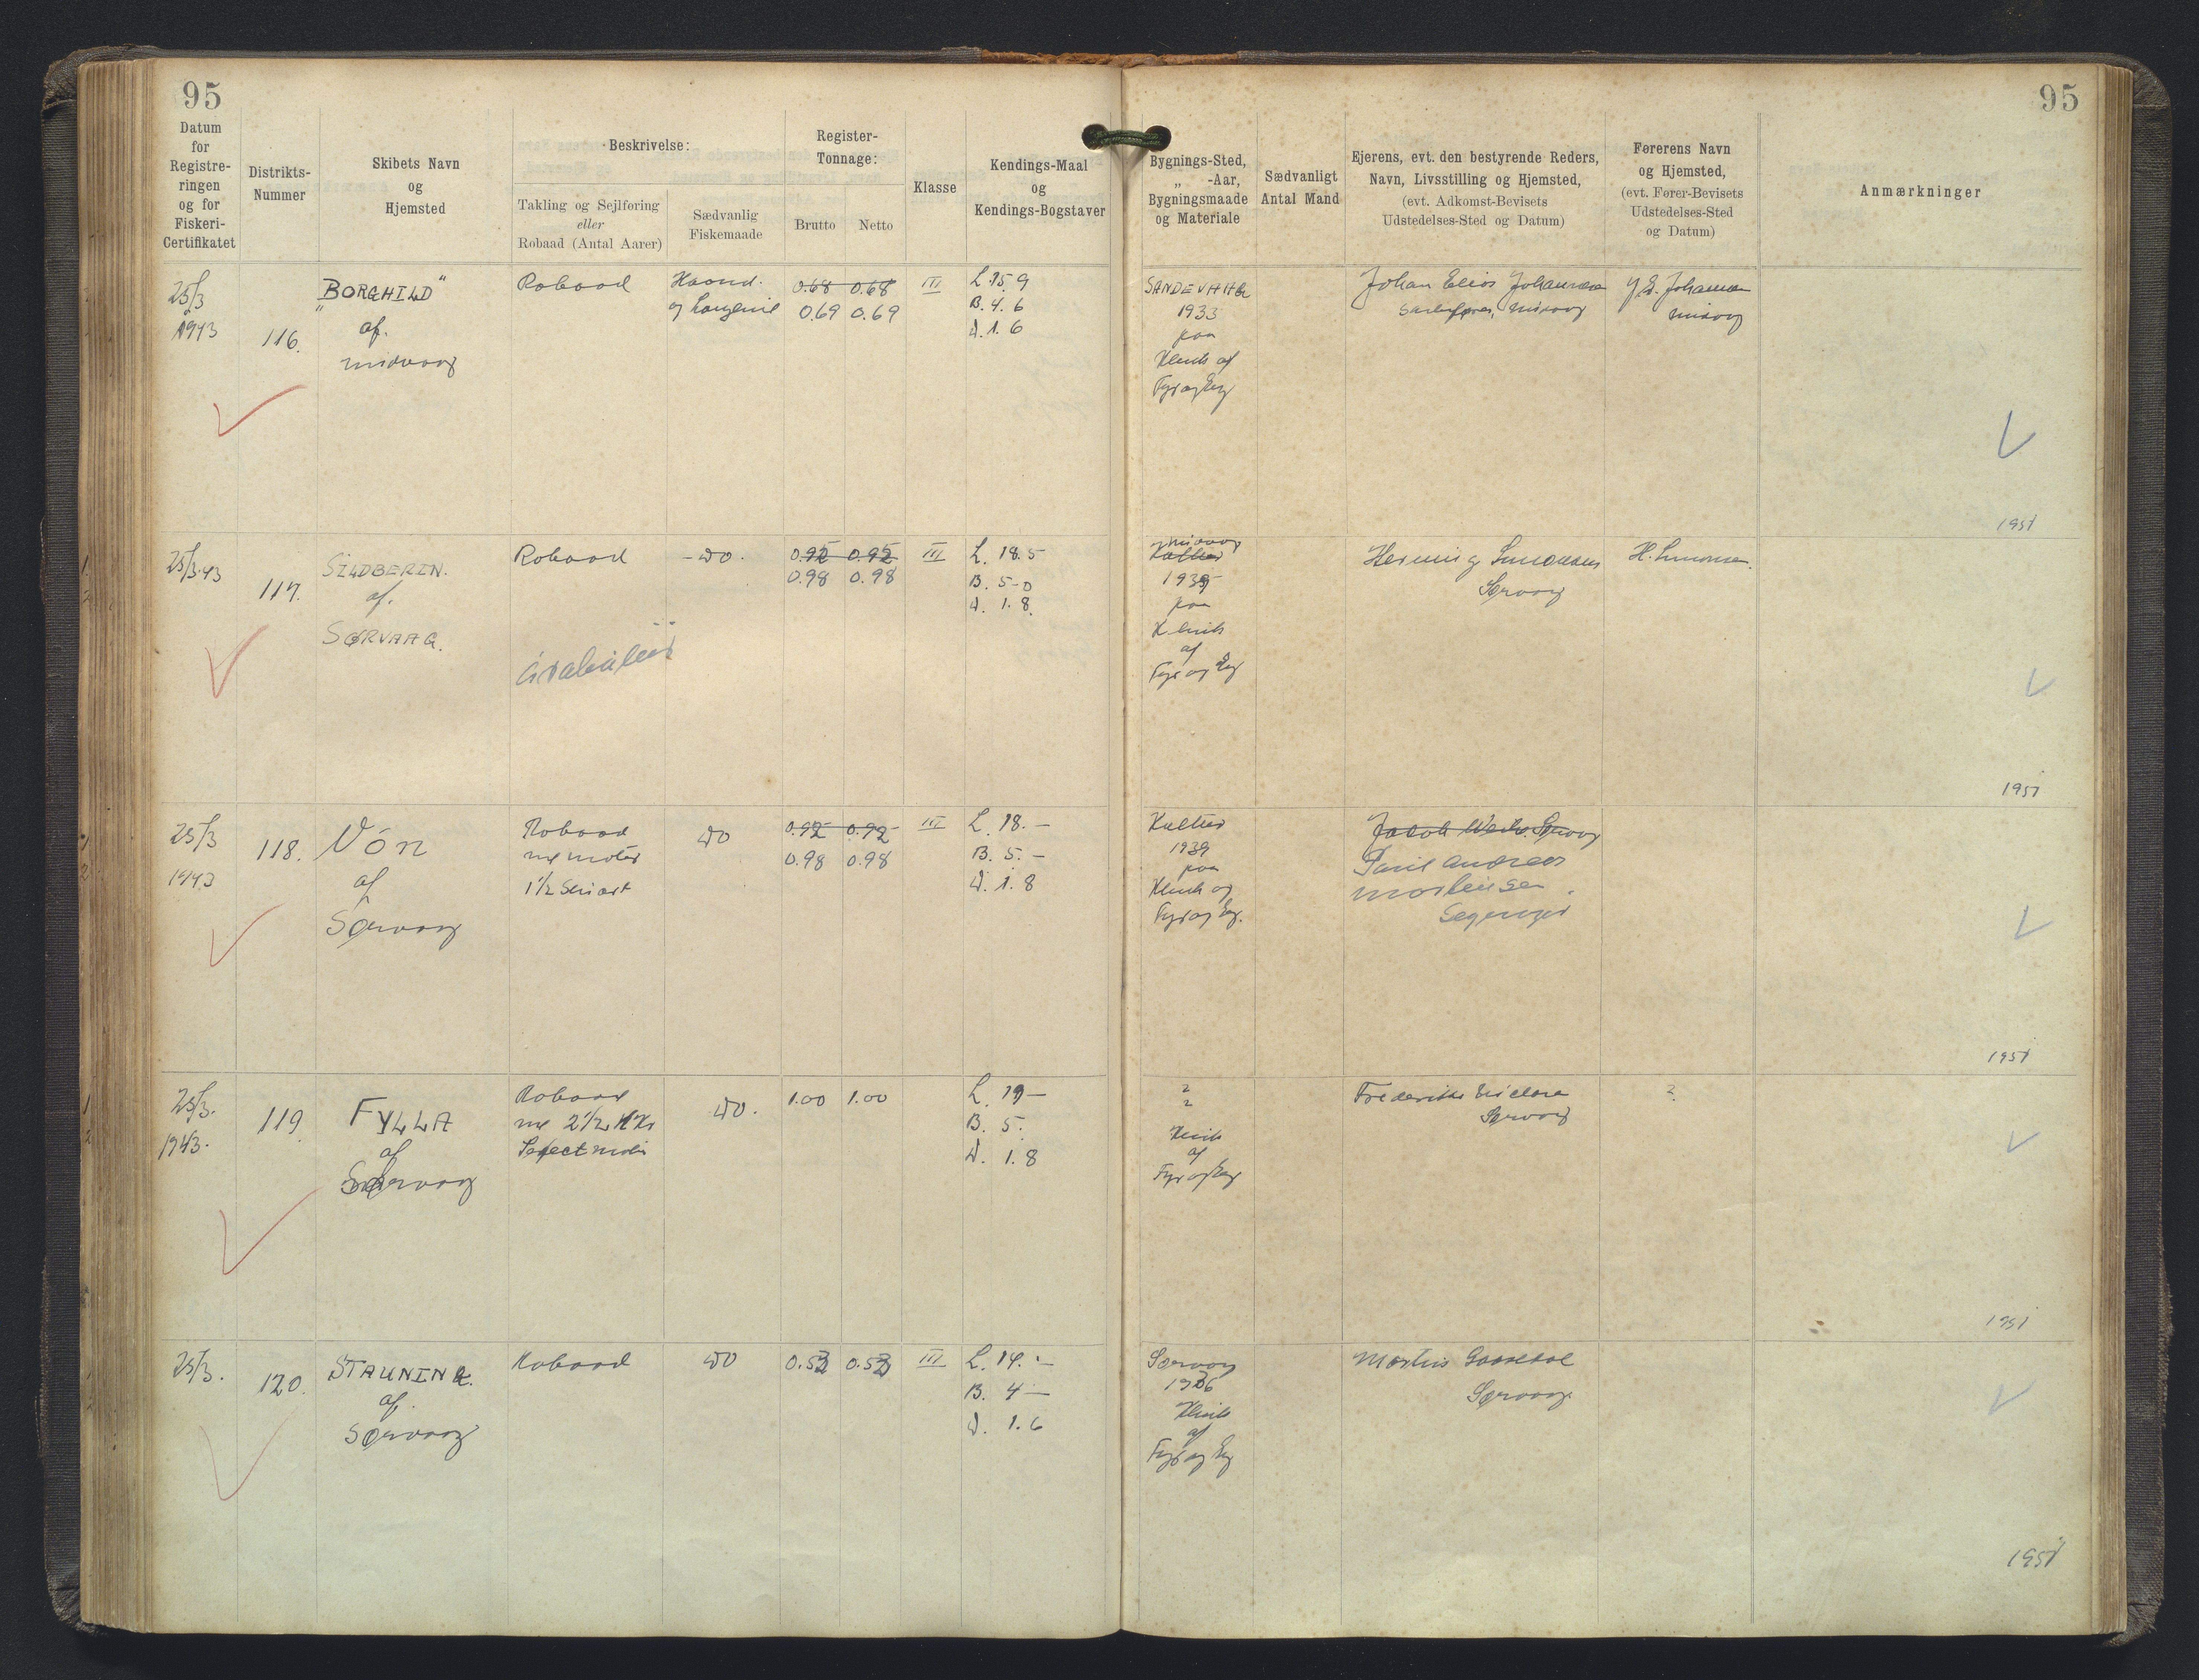 95
Datum
for
Registre-
ringen
og for
Fiskeri-
Certifikatet
Distrikts-
Nummer
Skibets Navn
og
Hjemsted
Beskrivelse:
Takling og Sejlføring
eller
Robaad (Antal Aarer)
Sædvanlig
Fiskemaade
Register-
Tonnage:
Brutto
Netto
Klasse
Kendings-Maal
og
Kendings-Bogstaver
25/3
1943
116.
"BORGHILD"
af.
midvaag
Robaad
Haand.
og Langline
0.68 0.68
0.69 0.69
III
L. 15.9
B. 4.6
D. 1.6
25/3.43
117.
SILDBERIN.
af.
SØRVAAG.
Robaad
- do.
0.92 0.92
0.98 0.98
III
L. 18.5
B. 5-0
D. 1.8.
25/3
1943
118.
Vón
af
Sørvaag
Robaad
m/ motor
1½ Seriart
do
0.92 0.92
0.98 0.98
III
L. 18.-
B. 5.-
D. 1.8
25/3.
1943.
119
FYLLA
af
Sørvaag
Robaad
m/ 2½ HK
do.
1.00 1.00
L. 19-
B. 5.
D. 1.8
25/3.
120.
STAUNING.
af.
Sørvaag
Robaad
do
0.53 0.53
III
L. 14.-
B. 4-
D. 1.6
95
Bygnings-Sted,
„ -Aar,
Bygningsmaade
og Materiale
Sædvanligt
Antal Mand
Ejerens, evt. den bestyrende Reders,
Navn, Livsstilling og Hjemsted,
(evt. Adkomst-Bevisets
Udstedelses-Sted og Datum)
Førerens Navn
og Hjemsted,
(evt. Fører-Bevisets
Udstedelses-Sted
og Datum)
Anmærkninger
SANDEVAAG
1933
paa
Klink af
Fyr og Eg
Johan Elias Johannesen
midvaag
J. E. Johannesen
midvaag
1951
midvaag
1939
paa
Klink
af
Fyr og Eg
Henning Simonsen
Sørvaag
H. Simonsen.
1951
1939
paa
Klink af
Fyr og Eg.
Jacob Sørvaag
Poul Andreas
Mortensen.
1951
?
?
Klink
af
Fyr og Eg
Sørvaag
?
1951
Sørvaag
1936
Klink
af
Fyr og Eg
Martin Gaasedal
Sørvaag.
1951